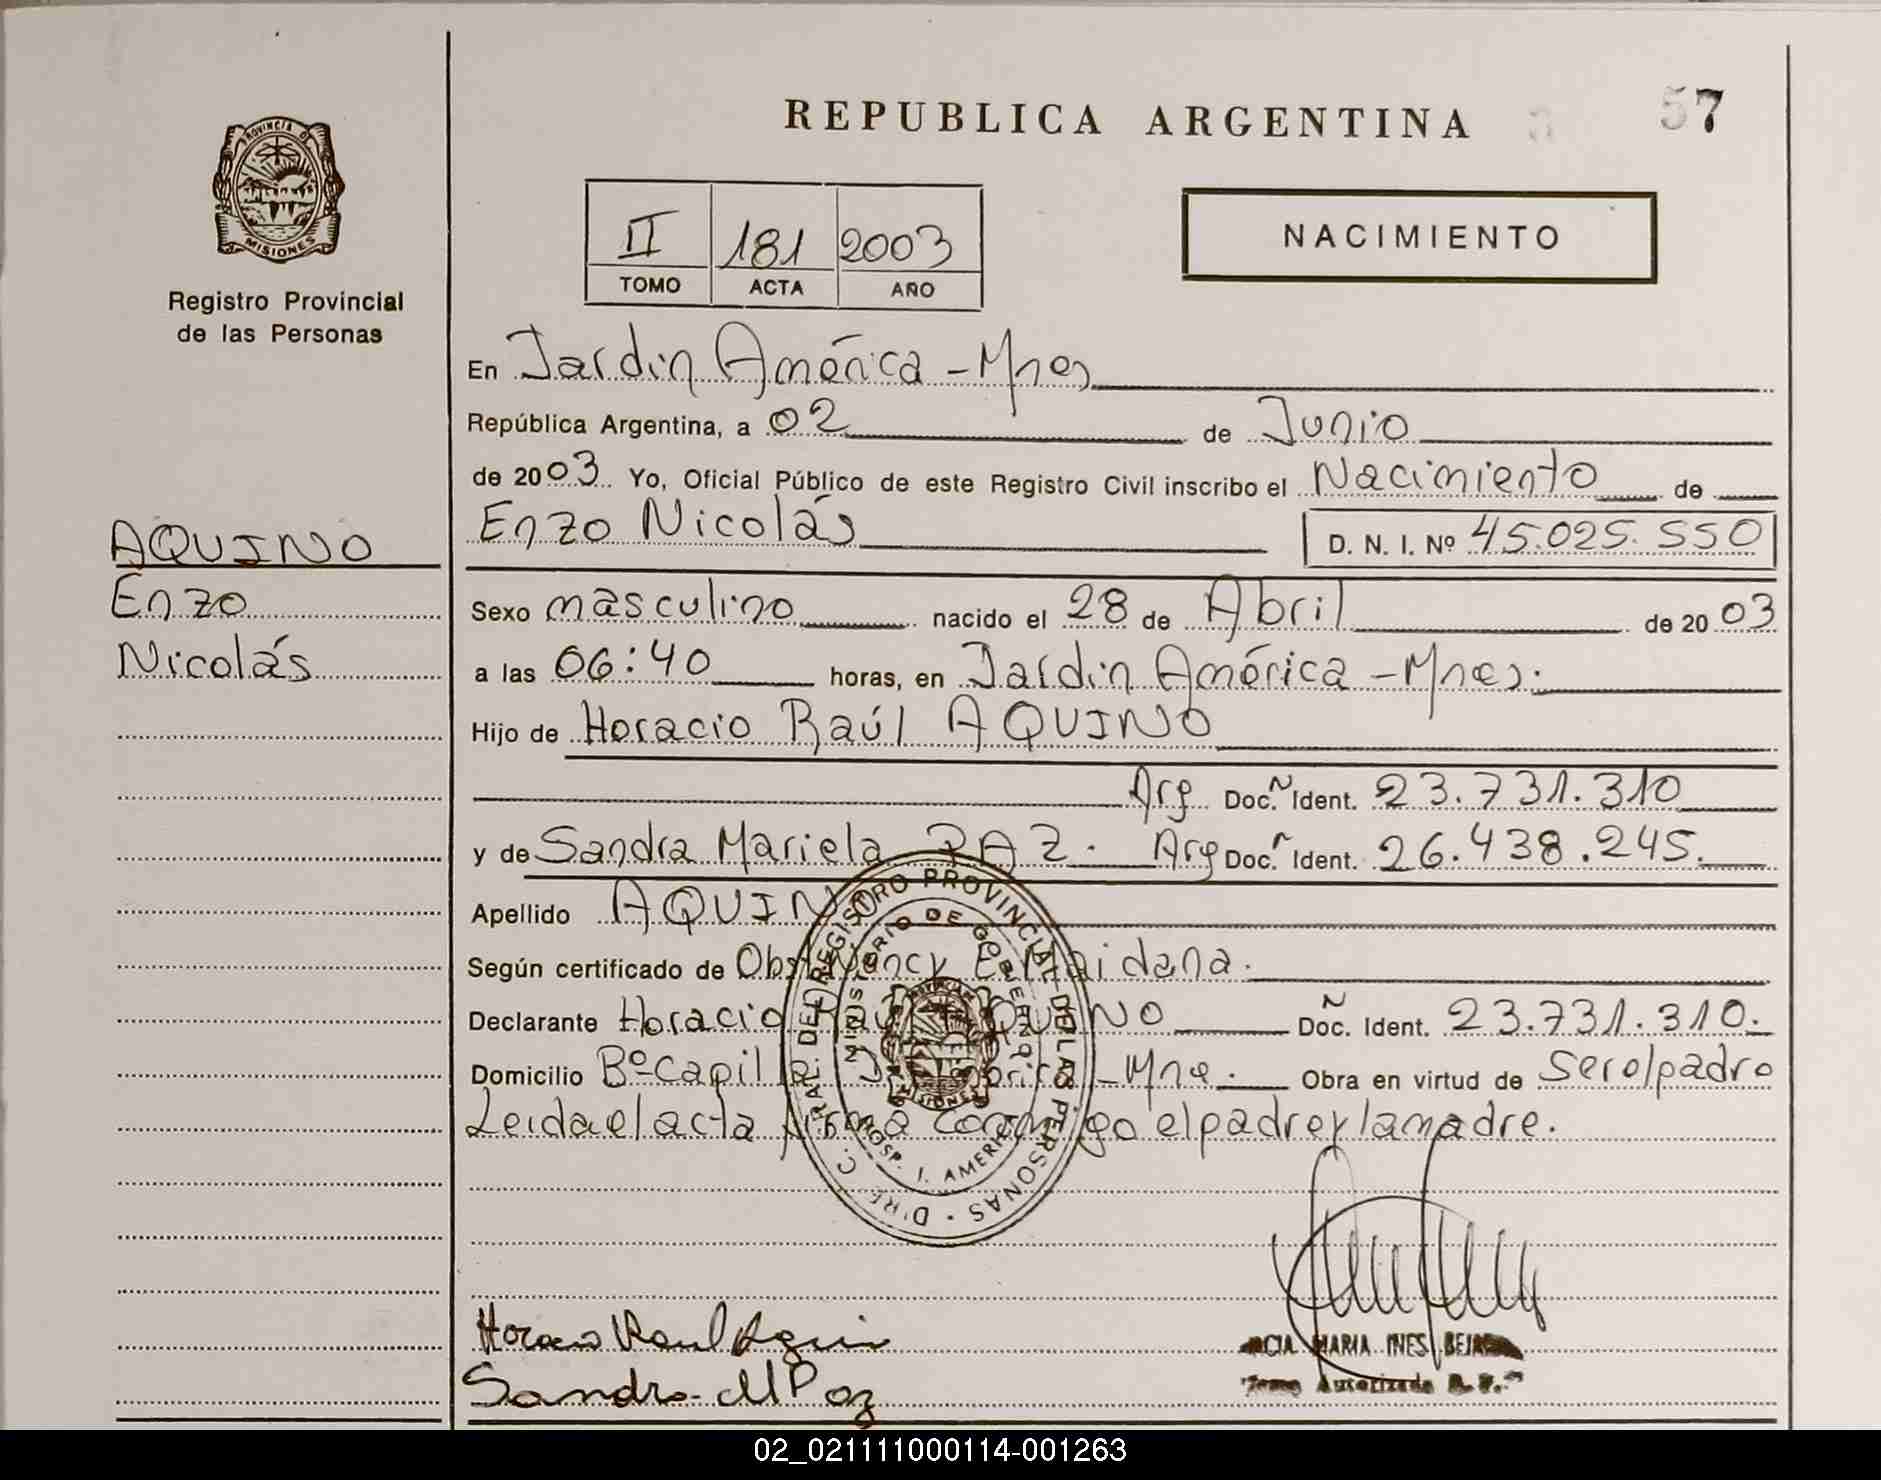 REPUBLICA ARGENTINA
57
PROVINCIA DE
MISIONES
Registro Provincial
de las Personas
II 181 2003
TOMO ACTA AÑO
NACIMIENTO
En Jardin América - Mnes
República Argentina, a 02 de Junio
de 2003 Yo, Oficial Público de este Registro Civil inscribo el Nacimiento de
Enzo Nicolás D. N. I. Nº 45.025.550
AQUINO
Enzo
Nicolás
Sexo masculino nacido el 28 de Abril de 2003
a las 06:40 horas, en Jardin América - Mnes.
Hijo de Horacio Raúl AQUINO
Arg Doc. Ident. 23.731.310
y de Sandra Mariela PAZ. Arg Doc. Ident. 26.438.245.
Apellido AQUINO
Según certificado de Obst. Nancy E. Maidana.
Declarante Horacio Raúl AQUINO Doc. Ident. 23.731.310.
Domicilio Bº Capilla J. América - Mne. Obra en virtud de Ser el padre
Leida el acta firma conmigo el padre y la madre.
REGISTRO PROVINCIAL DE LAS PERSONAS
MINISTERIO DE GOBIERNO
HOSP. J. AMERICA
MISIONES
Horacio Raul Aquin
Sandra M Paz
MARIA INES
Autorizada
02_021111000114-001263